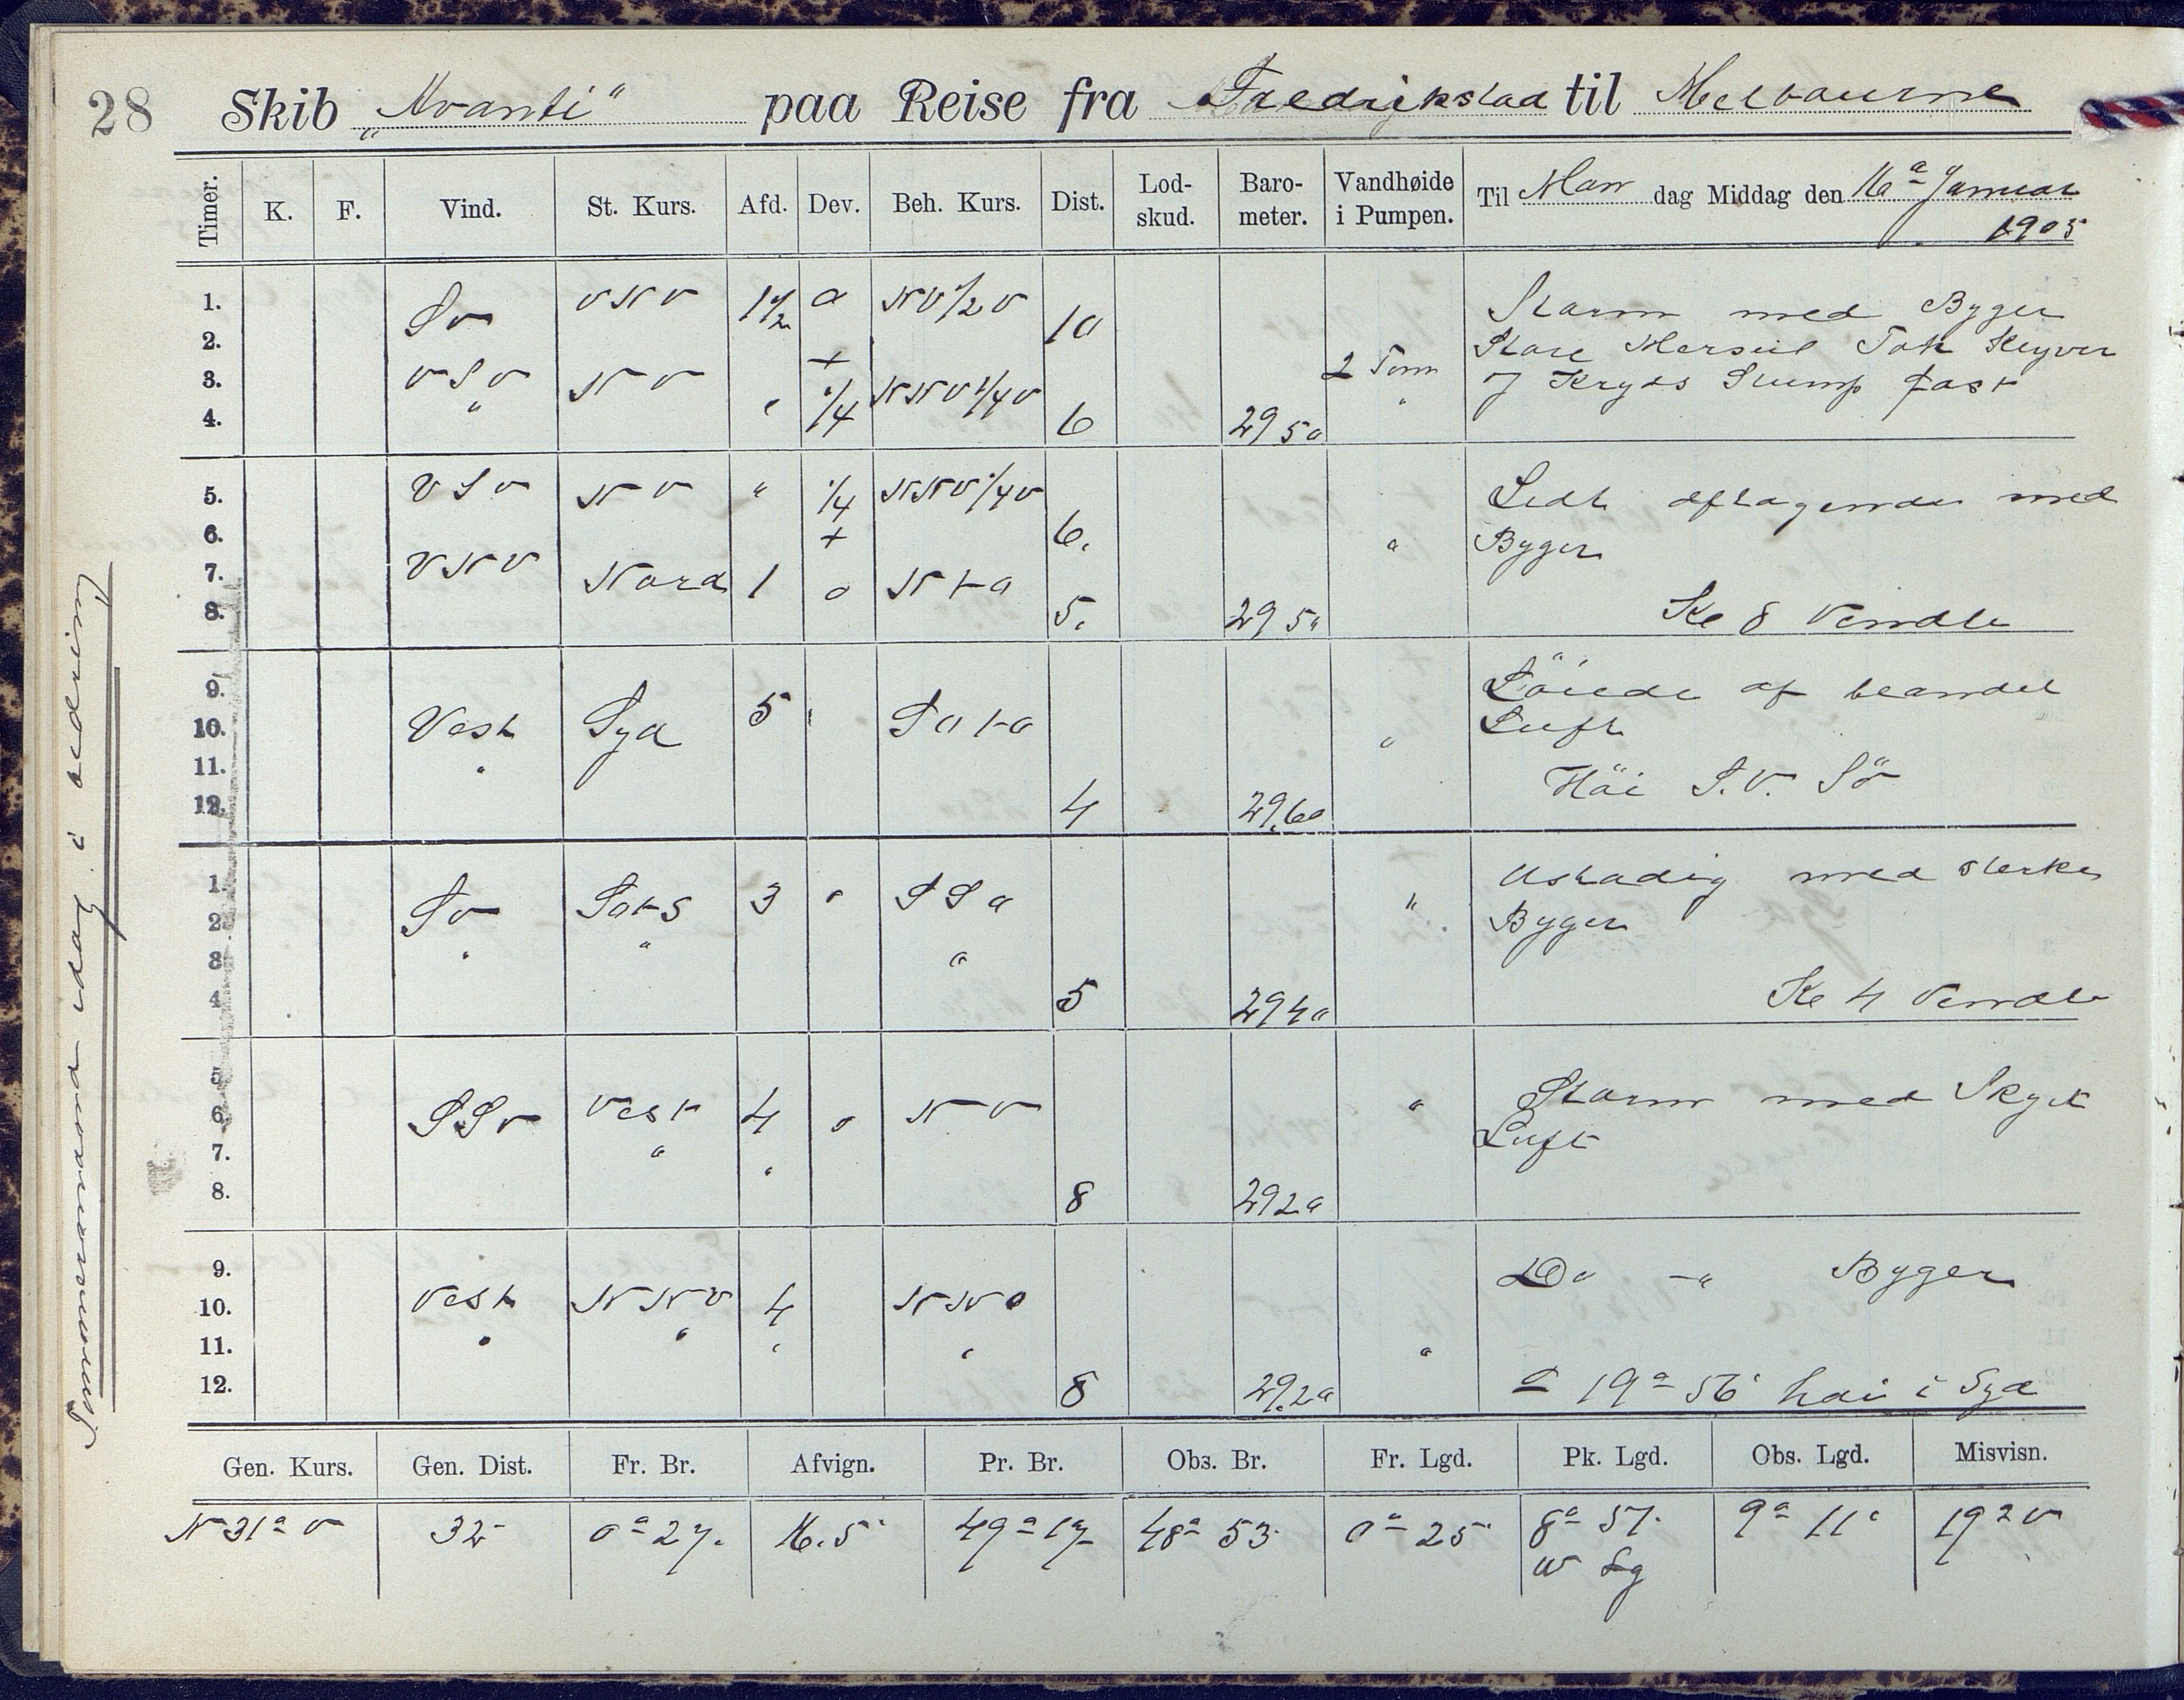 28 Skib „Avanti“ paa Reise fra Fredrikstad til Melbourne
Timer. K. F. Vind. St. Kurs. Afd. Dev. Beh. Kurs. Dist. Lod-skud. Baro-meter. Vandhøide i Pumpen. Til Man dag Middag den 16de Januar 1905
1. SV VNV 1½ 0 NV½V Storm med Byger
2. 10 Store Merseil Tok Klyver
3. VSV NV + NNV¼V 2 Tom & Kryds Stump fast
4. " " ¼ 6 29 50 "
5. VSV NV " ¼ NNV¼V " Lidt aftagende med
6. + 6. " Byger
7. VNV Nord 1 0 NtO
8. 5. 29 50 Kl 8 Vendte
9. Løiede af blandet
10. Vest Syd 5 " SOtO " Luft
11. " Høi S.V. Sø
12. 4 29.60
1. Ustadig med sterke
2. SV SOtS 3 " SSO " Byger
3. " " "
4. 5 29 40 Kl 4 Vendte
5.
6. SSV Vest 4 0 NV " Storm med Skyet
7. " " Luft
8. 8 29 20
9. Do - " Byger
10. Vest NNV 4 NNO
11. " " " " "
12. 8 29.20 a 19° 56' høi i Syd
Gen. Kurs. Gen. Dist. Fr. Br. Afvign. Pr. Br. Obs. Br. Fr. Lgd. Pk. Lgd. Obs. Lgd. Misvisn.
N 31° V 32 0° 27' 16.5' 49° 17' 48° 53' 0° 25' 8° 57' 9° 11' 19° V
W Lg
Tømmermanden idag i bedring